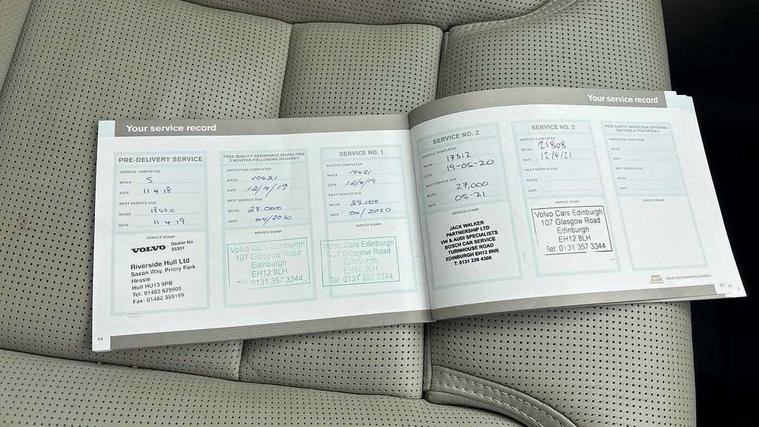 Your service record
PRE-DELIVERY SERVICE
SERVICE COMPLETED
MILES 5
DATE 11.4.18
NEXT SERVICE DUE
MILES 18000
DATE 11.4.19
SERVICE STAMP
VOLVO Dealer No
Riverside Hull Ltd
Saxon Way, Priory Park
Hessle
Hull HU13 9PB
Tel: 01482 629900
Fax: 01482 359159
44
FREE QUALITY ASSURANCE INSPECTION
3 MONTHS FOLLOWING DELIVERY
INSPECTION COMPLETED
MILES 10421
DATE 12/4/19
NEXT SERVICE DUE
MILES 28.000
DATE 04/2020
SERVICE STAMP
Volvo Cars Edinburgh
107 Glasgow Road
Edinburgh
EH12 8LH
Tel: 0131 357 3344
SERVICE NO. 1
SERVICE COMPLETED
MILES 10421
DATE 12/4/19
NEXT SERVICE DUE
MILES 28.000
DATE 04/2020
SERVICE STAMP
Volvo Cars Edinburgh
107 Glasgow Road
Edinburgh
EH12 8LH
Tel: 0131 357 3344
Your service record
SERVICE NO. 2
SERVICE COMPLETED
MILES 17312
DATE 19-05-20
NEXT SERVICE DUE
MILES 27,000
DATE 05-21
SERVICE STAMP
JACK WALKER
PARTNERSHIP LTD
VW & AUDI SPECIALISTS
BOSCH CAR SERVICE
TURNHOUSE ROAD
EDINBURGH EH12 8NR
T: 0131 339 4300
SERVICE NO. 3
SERVICE COMPLETED
MILES 21808
DATE 12/4/21
NEXT SERVICE DUE
MILES
DATE
SERVICE STAMP
Volvo Cars Edinburgh
107 Glasgow Road
Edinburgh
EH12 8LH
Tel: 0131 357 3344
SERVICE COMPLETED
MILES
DATE
NEXT SERVICE DUE
MILES
DATE
SERVICE STAMP